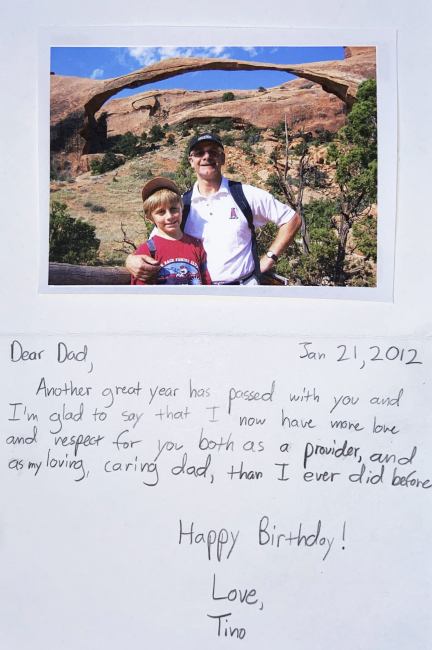 Dear Dad,
Jan 21, 2012
Another great year has passed with you and
I'm glad to say that I now have more love
and respect for you both as a provider, and
as my loving, caring dad, than I ever did before
Happy Birthday!
Love,
Tino